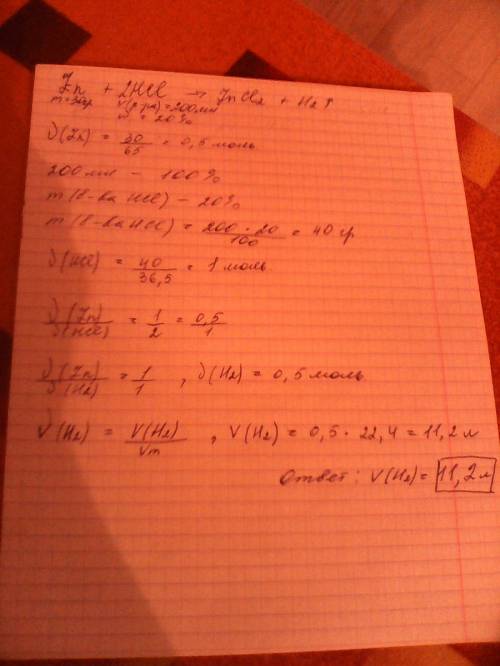 Zn + 2HCl → ZnCl₂ + H₂↑
m=30гр V(р-ра)=200мл
w = 20%
ν(Zn) = 30/65 = 0,5 моль
200 мл – 100%
m(в-ва HCl) – 20%
m(в-ва HCl) = 200·20/100 = 40 гр
ν(HCl) = 40/36,5 = 1 моль
ν(Zn)/ν(HCl) = 1/2 = 0,5/1
ν(Zn)/ν(H₂) = 1/1 , ν(H₂) = 0,5 моль
ν(H₂) = V(H₂)/Vm , V(H₂) = 0,5 · 22,4 = 11,2 л
Ответ: V(H₂) = 11,2 л